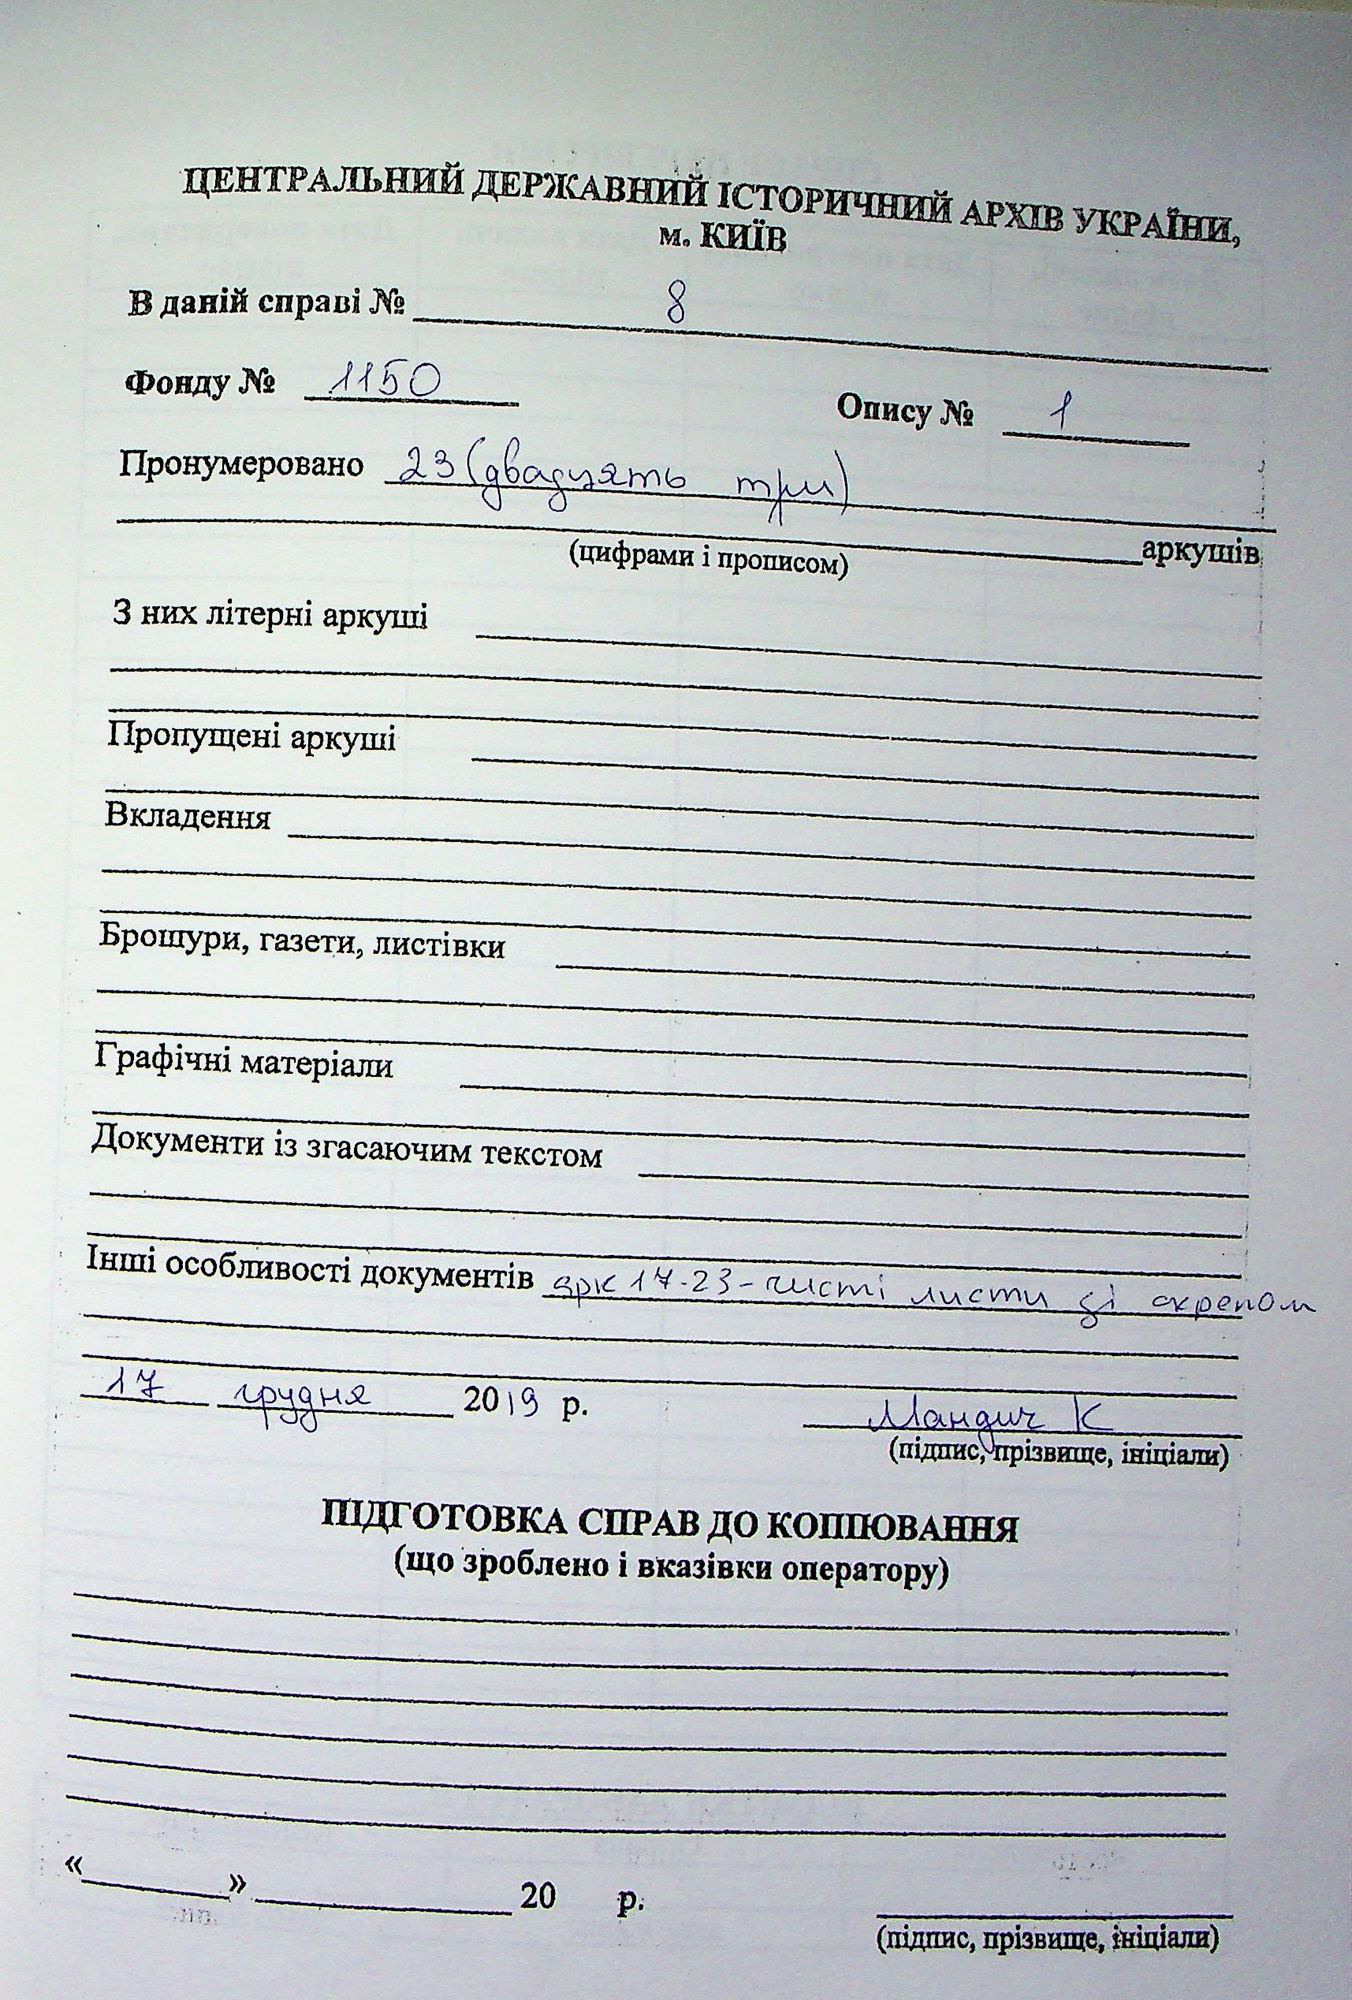 ЦЕНТРАЛЬНИЙ ДЕРЖАВНИЙ ІСТОРИЧНИЙ АРХІВ УКРАЇНИ,
м. КИЇВ
В даній справі № 8
Фонду № 1150 Опису № 1
Пронумеровано 23 (двадцять три)
аркушів
(цифрами і прописом)
З них літерні аркуші
Пропущені аркуші
Вкладення
Брошури, газети, листівки
Графічні матеріали
Документи із згасаючим текстом
Інші особливості документів арк 17-23 - чисті листи зі скрепом
17 грудня 2019 р. Мандич К
(підпис, прізвище, ініціали)
ПІДГОТОВКА СПРАВ ДО КОПІЮВАННЯ
(що зроблено і вказівки оператору)
« » 20 р.
(підпис, прізвище, ініціали)